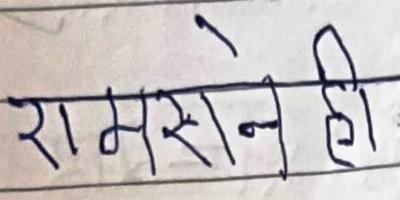 रामसोन ही